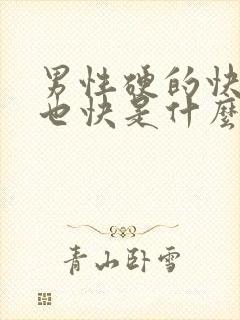 男性硬的快
也快是什麼
青山卧雪